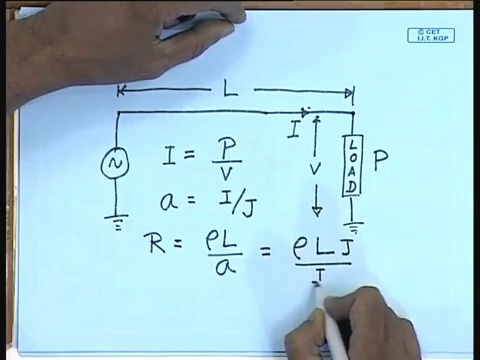 © CET
I.I.T. KGP
L
I
I = P/V
V
LOAD
P
a = I/J
R = ρL/a = ρLJ/I